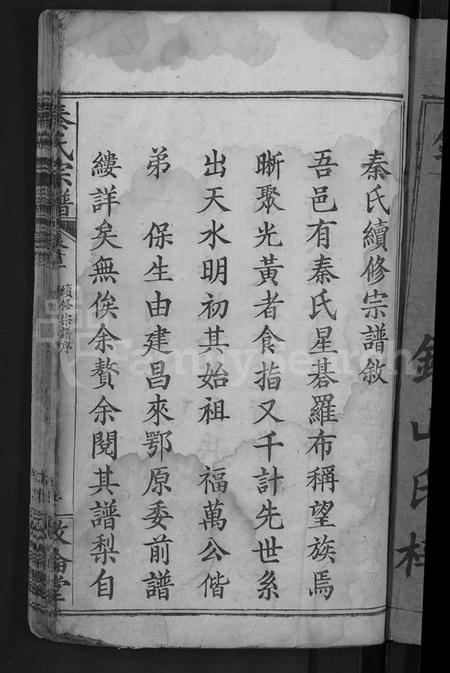 秦氏續修宗譜敘
吾邑有秦氏星碁羅布稱望族焉
晰聚光黃者食指又千計先世系
出天水明初其始祖 福萬公偕
弟 保生由建昌來鄂原委前譜
縷詳矣無俟余贅余閱其譜梨自
秦氏宗譜
續修宗譜序
敦倫堂
FamilySearch